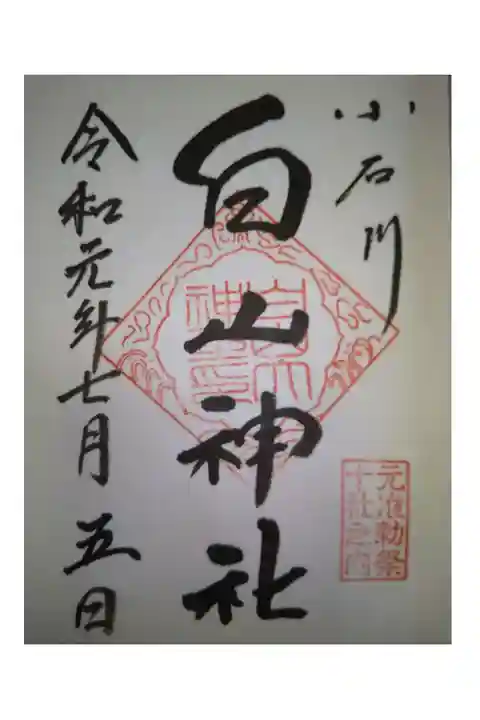 小石川
白山神社
元准勅祭
十社之内
令和元年七月五日